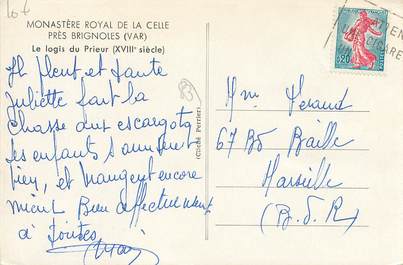 Lot
MONASTÈRE ROYAL DE LA CELLE
PRÈS BRIGNOLES (VAR)
Le logis du Prieur (XVIIIe siècle)
Il pleut, et tante
Juliette fait la
chasse aux escargots
les enfants s'amusent
bien, et mangent encore
mieux Bien affectueusement
à Toutes
(Cliché Perrier)
83
0,20
Mme Veraud
67 Bd Baille
Marseille
(B.D.R)